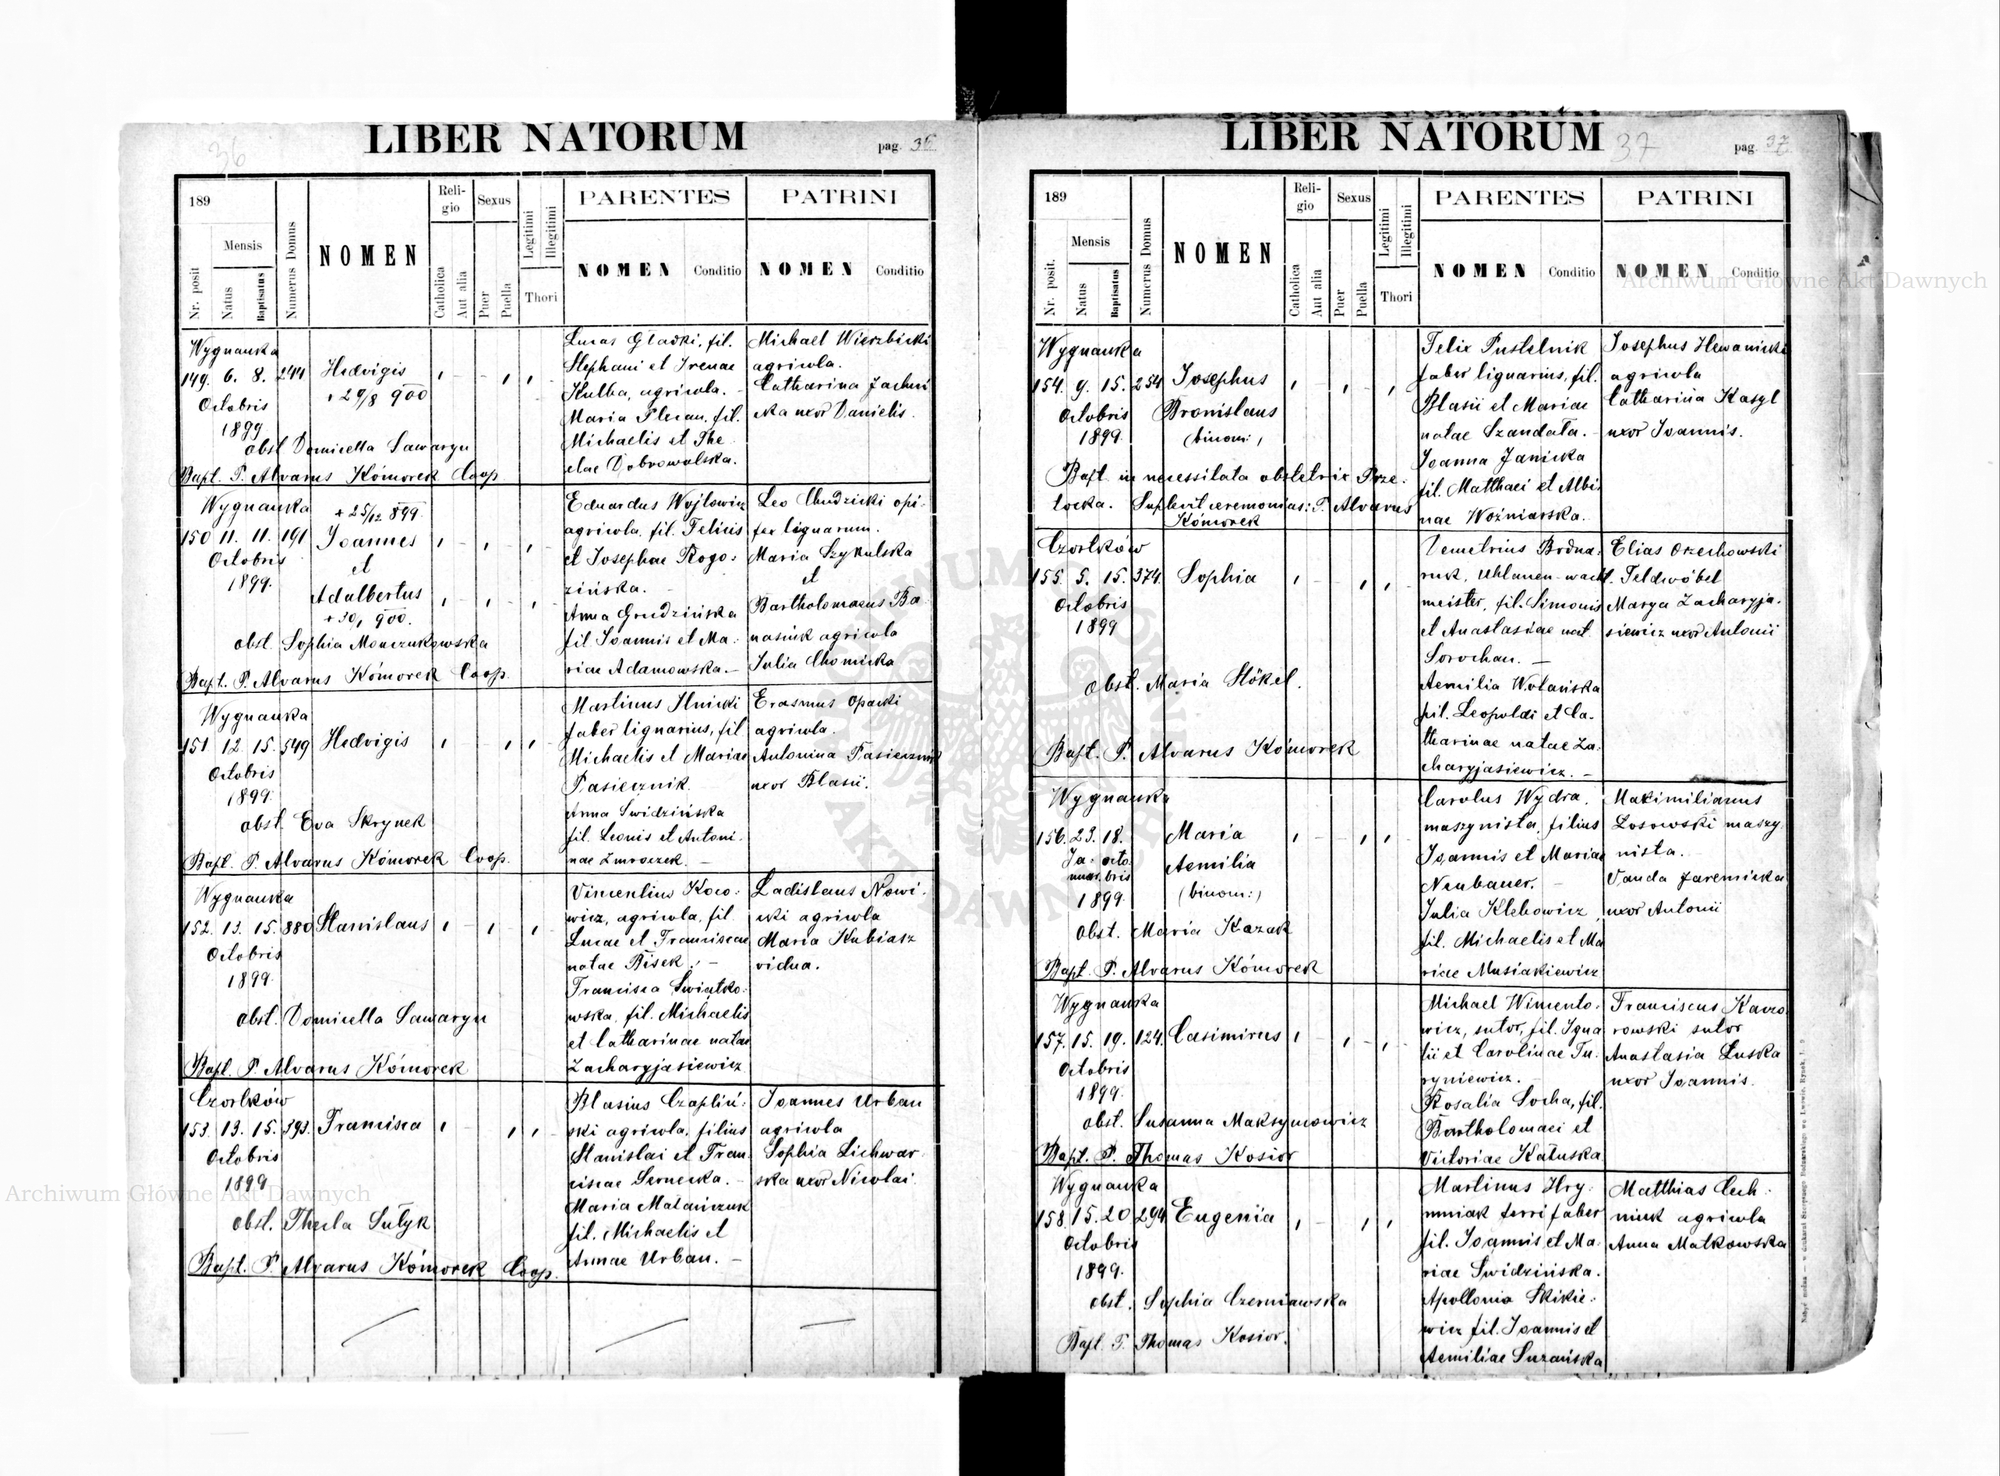 36
LIBER NATORUM
pag. 36
189
Nr. posit
Mensis
Natus
Baptisatus
Numerus Domus
NOMEN
Religio
Catholica
Aut alia
Sexus
Puer
Puella
Legitimi
Illegitimi
Thori
PARENTES
NOMEN
Conditio
PATRINI
NOMEN
Conditio
Wygnanka
149. 6. 8. 244 Hedvigis
+ 29/8 900
Octobris
1899
obst Domicella Sawaryn
Bapt. P. Alvarus Kómorek Coop.
Lucas Gladki, fil.
Stephani et Irenae
Kulba, agricola. -
Maria Plecan, fil.
Michaelis et The
clae Dobrowolska.
Michael Wierzbicki
agricola.
Catharina Jachni
cka uxor Danielis.
Wygnanka
+ 25/12 899.
150 11. 11. 191 Joannes
Octobris
et
1899.
Adalbertus
obst. Sophia Monczukowska
Bapt. P. Alvarus Kómorek Coop.
Eduardus Wojtowicz
agricola, fil. Felicis
et Josephae Rogo:
zińska. -
Anna Grudzińska
fil Joannis et Ma:
riae Adamowska. -
Leo Chudzicki opi:
fex lignarum.
Maria Szykulska
et
Bartholomaeus Ba
nasiuk agricola
Julia Chomicka
Wygnanka
151 12. 15. 549 Hedvigis
Octobris
1899.
obst. Eva Skrynek
Bapt. P. Alvarus Kómorek Coop.
Martinus Ilnicki
faber lignarius, fil
Michaelis et Mariae
Pasiecznik. -
Anna Swidzińska
fil. Leonis et Antoni:
nae Zmroczek. -
Erasmus Opacki
agricola.
Antonina Pasiecznik
uxor Blasii.
Wygnanka
152. 13. 15. 880 Stanislaus
Octobris
1899.
obst. Domicella Sawaryn
Bapt. P. Alvarus Kómorek
Vincentius Koco:
wicz, agricola, fil.
Lucae et Franciscae
natae Bisek. -
Francisca Swiątko:
wska, fil. Michaelis
et Catharinae natae
Zacharyjasiewicz
Ladislaus Nowi:
cki agricola
Maria Kubiasz
vidua.
Czortków
153. 13. 15. 393. Francisca
Octobris
1899
obst. Thecla Sutyk
Bapt. P. Alvarus Kómorek Coop.
Blasius Czapliń:
ski agricola, filius
Stanislai et Fran:
ciscae Sernecka. -
Maria Matańczuk
fil. Michaelis et
Annae Urban. -
Joannes Urban
agricola
Sophia Lichwar:
ska uxor Nicolai.
LIBER NATORUM
37
pag. 37
189
Nr. posit.
Mensis
Natus
Baptisatus
Numerus Domus
NOMEN
Religio
Catholica
Aut alia
Sexus
Puer
Puella
Legitimi
Illegitimi
Thori
PARENTES
NOMEN
Conditio
PATRINI
NOMEN
Conditio
Wygnanka
154. 9. 15. 254 Josephus
Octobris Bronislaus
1899. (binom:)
Bapt. in necessitate obstetrix Prze:
locka. Suplevit ceremonias: P. Alvarus
Kómorek
Felix Pustelnik
faber lignarius, fil.
Blasii et Mariae
natae Szandala. -
Joanna Janicka
fil. Matthaei et Albi
nae Woźniarska.
Josephus Hewanicki
agricola
Catharina Kasyl
uxor Joannis.
Czortków
155. 5. 15. 374. Sophia
Octobris
1899
obst. Maria Stökel.
Bapt. P. Alvarus Kómorek
Demetrius Bodna:
ruk, Uhlanen-wacht
meister, fil. Simonis
et Anastasiae nat.
Sorochan. -
Aemilia Wolańska
fil. Leopoldi et Ca:
tharinae natae Za:
charyjasiewicz. -
Elias Orzechowski
Feldwöbel
Marya Zacharyja:
siewicz uxor Antonii
Wygnanka
156. 23. 18. Maria
Ja: octo
nuar. bris Aemilia
1899 (binom:)
obst. Maria Kazak
Bapt. P. Alvarus Kómorek
Carolus Wydra,
maszynista, filius
Joannis et Mariae
Neubauer. -
Julia Klebowicz,
fil. Michaelis et Ma
riae Musiakiewicz
Maximilianus
Losowski maszy:
nista.
Vanda Jaremicka
uxor Antonii
Wygnanka
157. 15. 19. 124. Casimirus
Octobris
1899.
obst. Susanna Maksymowicz
Bapt. P. Thomas Kosior
Michael Wincento:
wicz, sutor, fil. Igna
tii et Carolinae Tu:
ryniewicz.
Rosalia Socha, fil.
Bartholomaei et
Victoriae Katuska
Franciscus Kawo:
rowski sutor
Anastasia Luska
uxor Joannis.
Wygnanka
158 15. 20 294 Eugenia
Octobris
1899.
obst. Sophia Czerniawska
Bapt. P. Thomas Kosior.
Martinus Hry:
mniak ferri faber
fil. Joannis et Ma:
riae Swidzińska.
Apollonia Skikie:
wicz fil. Joannis et
Aemiliae Suzańska
Matthias Cech:
niuk agricola
Anna Matkowska
Archiwum Główne Akt Dawnych
Archiwum Główne Akt Dawnych
ARCHIWUM GŁÓWNE AKT DAWNYCH